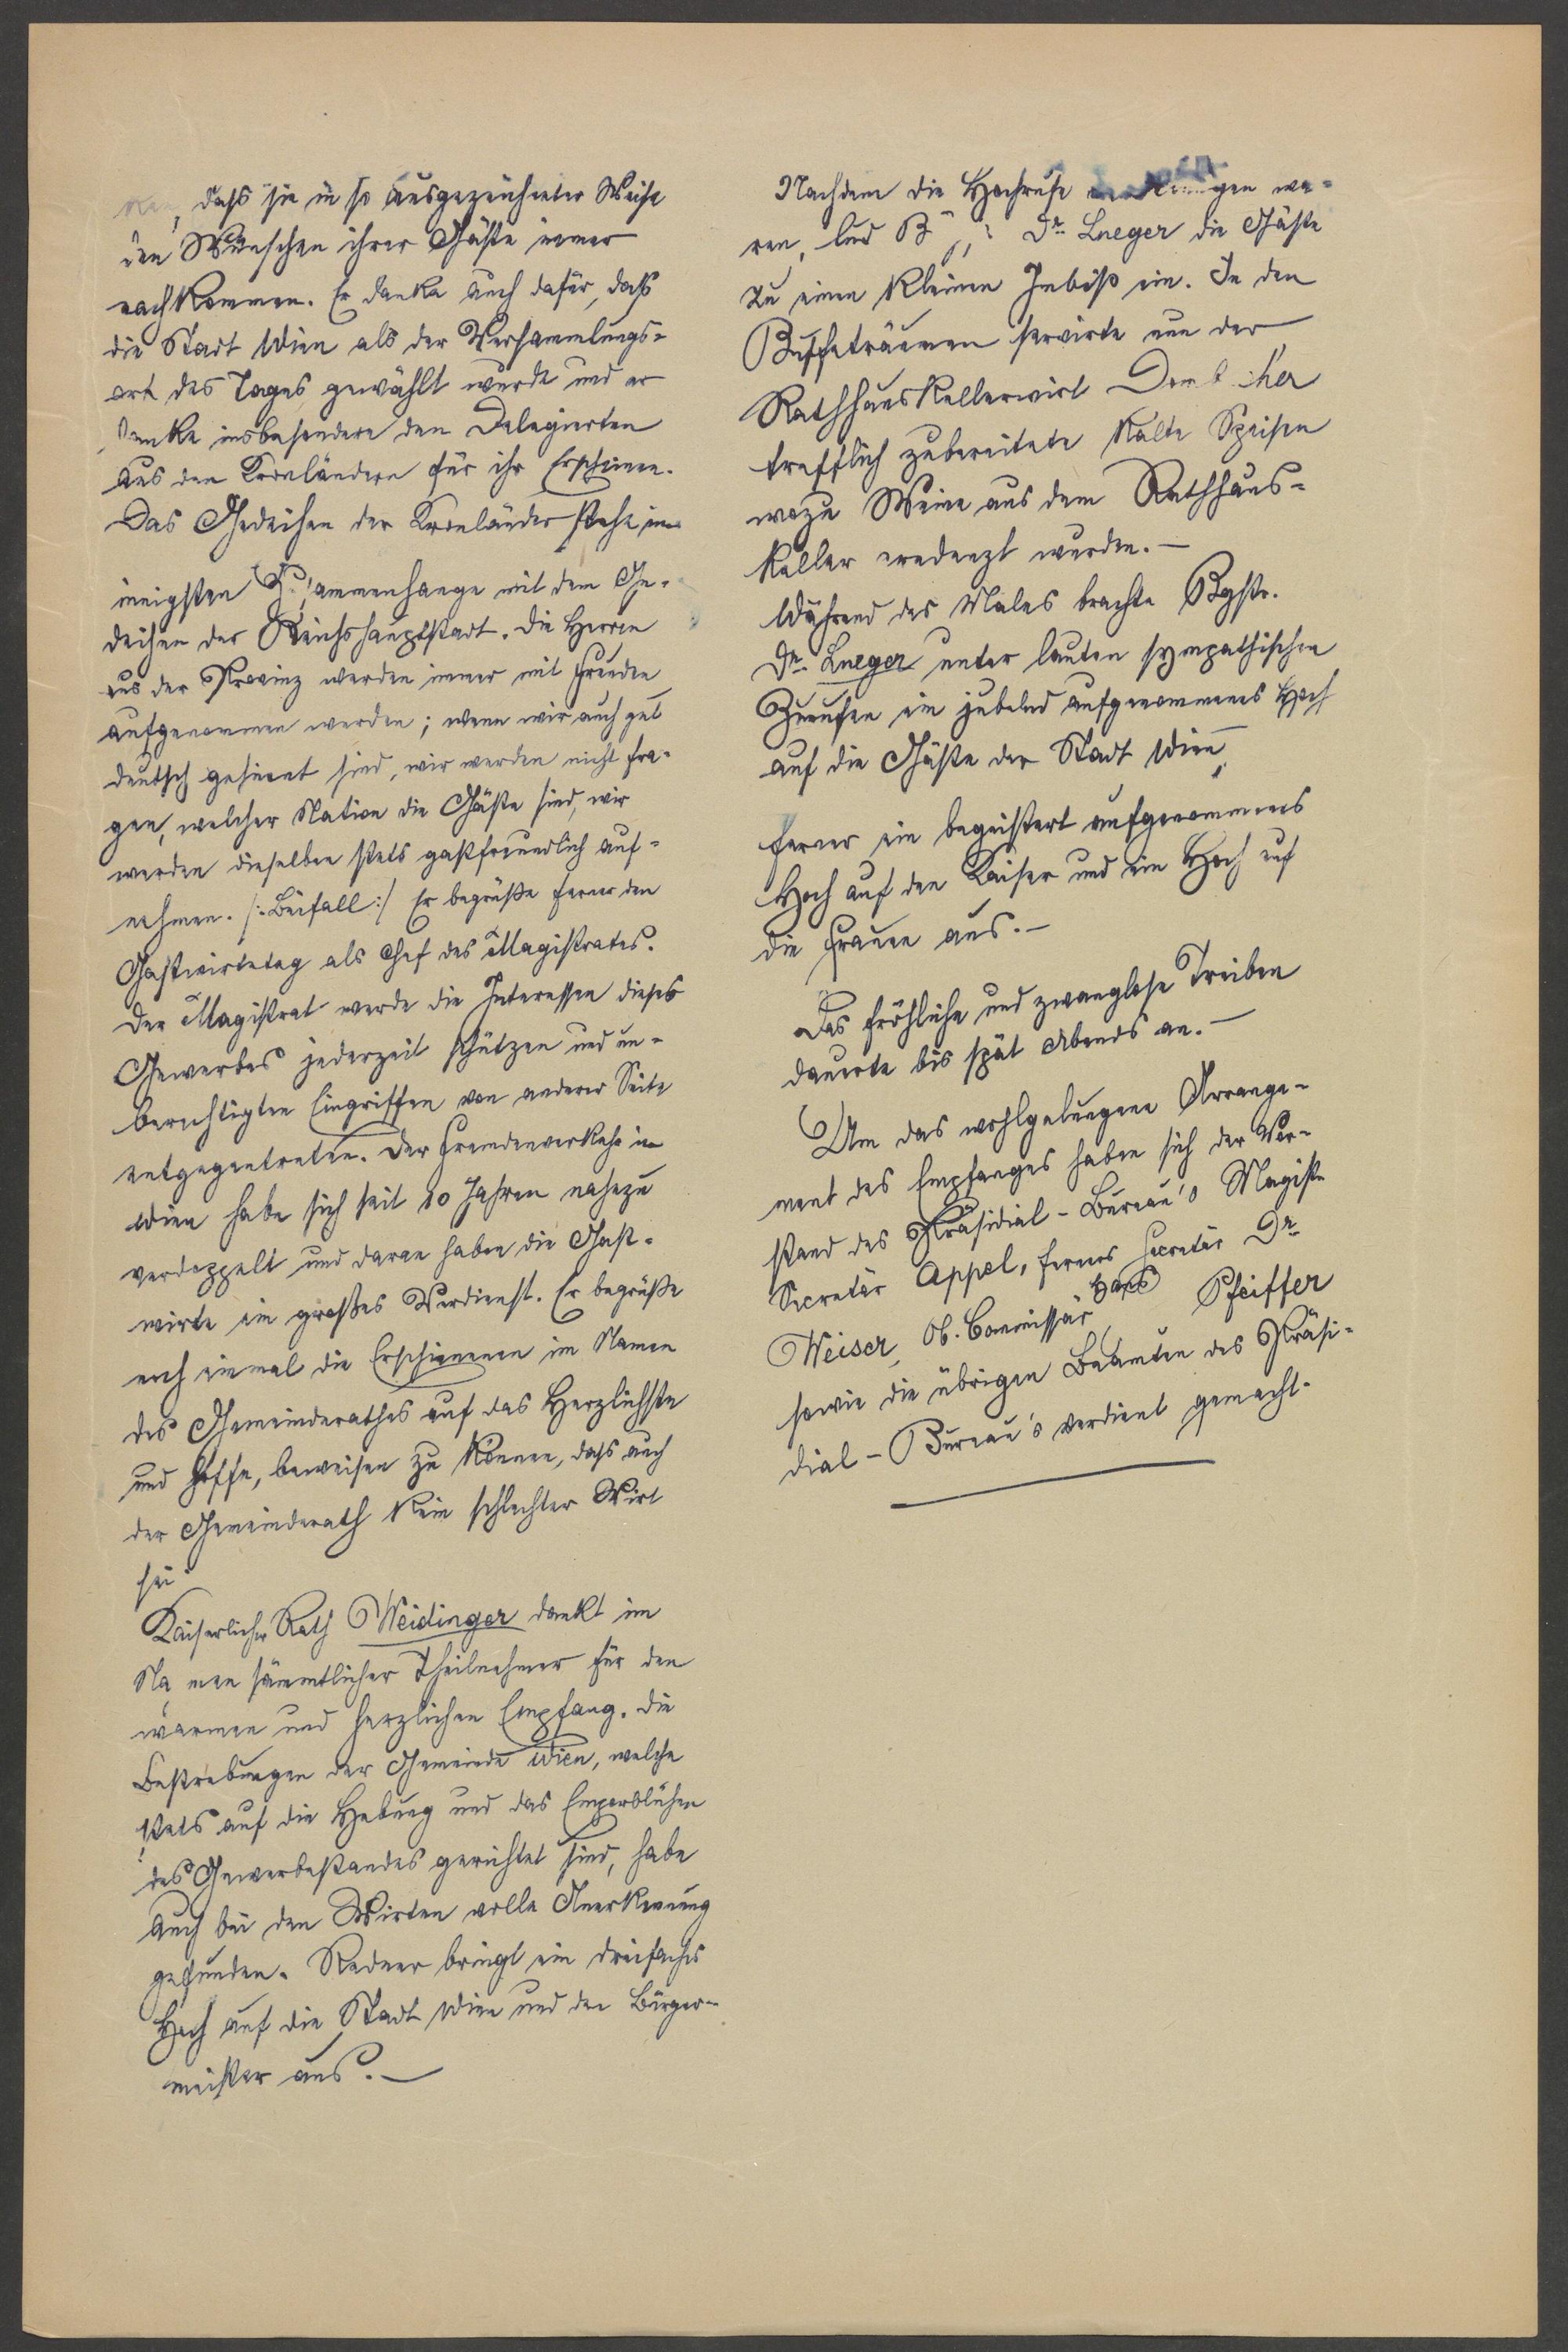 daß sie in so ausgezeichneter Weise
den Wünschen ihrer Gäste immer
nachkommen. Er danke auch dafür, daß
die Stadt Wien als der Versammlungs-
ort des Tages gewählt wurde und er
danke insbesondere den Delegierten
aus den Kronländern für ihr Erscheinen.
Das Gedeihen der Kronländer stehe im
innigsten Zusammenhange mit dem Ge-
deihen der Reichshauptstadt. Die Herren
aus der Provinz werden immer mit Freuden
aufgenommen werden; wenn wir auch gut
deutsch gesinnt sind, wir werden nicht fra-
gen, welcher Nation die Gäste sind, wir
werden dieselben stets gastfreundlich auf-
nehmen. /:Beifall:/ Er begrüße ferner den
Gastwirtetag als Chef des Magistrates.
Der Magistrat werde die Interessen dieses
Gewerbes jederzeit schützen und un-
berechtigten Eingriffen von anderer Seite
entgegentreten. Der Fremdenverkehr in
Wien habe sich seit 10 Jahren nahezu
verdoppelt und daran haben die Gast-
wirte ein großes Verdienst. Er begrüße
noch einmal die Erschienenen im Namen
des Gemeinderathes auf das Herzlichste
und hoffe, beweisen zu können, daß auch
der Gemeinderath kein schlechter Wirt
sei.
Kaiserlicher Rath Weidinger dankt im
Namen sämmtlicher Theilnehmer für den
warmen und herzlichen Empfang. Die
Bestrebungen der Gemeinde Wien, welche
stets auf die Hebung und das Emporblühen
des Gewerbestandes gerichtet sind, habe
auch bei den Wirten volle Anerkennung
gefunden. Redner bringt ein dreifaches
Hoch auf die Stadt Wien und den Bürger-
meister aus.—
Nachdem die Hochrufe wa-
ren, lud Dr. Lueger die Gäste
zu einen kleinen Imbiß ein. In den
Buffeträumen servirte nun der
Rathhauskellerwirt
trefflich zubereitete kalte Speisen
wozu Weine aus dem Rathhaus-
keller credenzt wurden.—
Während des Males brachte Bgstr.
Dr. Lueger unter lauten sympathischen
Zurufen ein jubelnd aufgenommenes Hoch
auf die Gäste der Stadt Wien,
ferner ein begeistert aufgenommenes
Hoch auf den Kaiser und ein Hoch auf
die Frauen aus.—
Das fröhliche und zwanglose Treiben
dauerte bis spät Abends an.—
Um das wohlgelungene Arrange-
ment des Empfanges haben sich der Vor-
stand des Präsidial-Bureau's Magistr
Secretär Appel, ferner Secretär Dr.
Weiser, Ob. Commissär Hans Pfeiffer
sowie die übrigen Beamten des Präsi-
dial-Bureau's verdient gemacht.